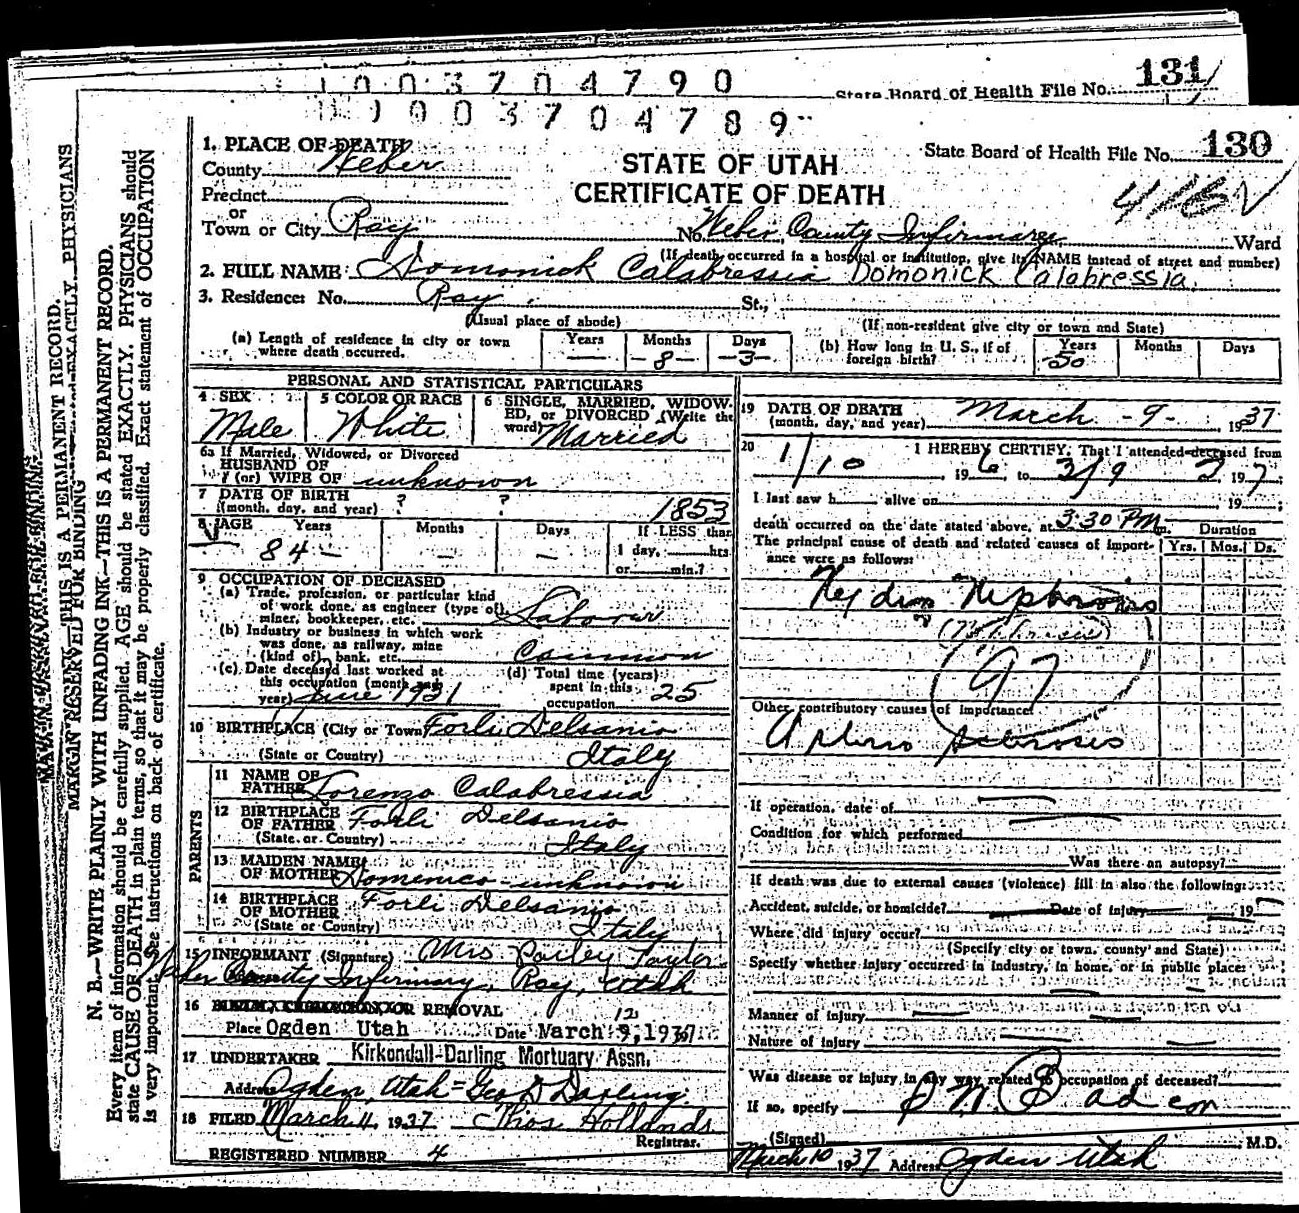 1003704790
State Board of Health File No. 131
1003704789
1. PLACE OF DEATH
County Weber
STATE OF UTAH
CERTIFICATE OF DEATH
State Board of Health File No. 130
Precinct
or
Town or City Roy
No. Weber County Infirmary Ward
(If death occurred in a hospital or institution, give its NAME instead of street and number)
2. FULL NAME Domonick Calabressia Domonick Calabressia.
3. Residence: No. Roy St.,
(Usual place of abode)
(If non-resident give city or town and State)
(a) Length of residence in city or town where death occurred. Years — Months -8- Days -3-
(b) How long in U. S., if of foreign birth? Years -50 Months Days
PERSONAL AND STATISTICAL PARTICULARS
4 SEX Male
5 COLOR OR RACE White
6 SINGLE, MARRIED, WIDOWED, or DIVORCED (Write the word) Married
6a If Married, Widowed, or Divorced
HUSBAND OF
(or) WIFE OF unknown
7 DATE OF BIRTH
(month, day, and year) ? ? 1853
8 AGE Years 84- Months — Days —
If LESS than
1 day, hrs.
or min.?
9 OCCUPATION OF DECEASED
(a) Trade, profession, or particular kind
of work done, as engineer (type of),
miner, bookkeeper, etc. Laborer
(b) Industry or business in which work
was done, as railway, mine
(kind of), bank, etc. Common
(c) Date deceased last worked at
this occupation (month and
year) June 1931
(d) Total time (years)
spent in this
occupation 25
10 BIRTHPLACE (City or Town) Forli Delsanio
(State or Country) Italy
PARENTS
11 NAME OF
FATHER Lorenzo Calabressia
12 BIRTHPLACE
OF FATHER Forli Delsanio
(State or Country) Italy
13 MAIDEN NAME
OF MOTHER Domenico-unknown
14 BIRTHPLACE
OF MOTHER Forli Delsanio
(State or Country) Italy
15 INFORMANT (Signature) Mrs Taylor
Weber County Infirmary, Roy, Utah
16 BURIAL, CREMATION, OR REMOVAL
Place Ogden Utah Date March 9, 12 1937
17 UNDERTAKER Kirkendall-Darling Mortuary Assn.
Address Ogden, Utah = Geo D Darling
18 FILED March 11, 1937 Thos Hollands
Registrar.
REGISTERED NUMBER 4
19 DATE OF DEATH
(month, day, and year) March -9-, 1937
20 I HEREBY CERTIFY, That I attended deceased from
1/10, 1936 to 3/9 1937
I last saw h alive on 19 ;
death occurred on the date stated above, at 3:30 PM m.
Duration
The principal cause of death and related causes of importance were as follows:
Yrs. Mos. Ds.
97
Other contributory causes of importance:
If operation, date of
Condition for which performed
Was there an autopsy?
If death was due to external causes (violence) fill in also the following:
Accident, suicide, or homicide? Date of injury 19
Where did injury occur?
(Specify city or town, county and State)
Specify whether injury occurred in industry, in home, or in public place:
Manner of injury
Nature of injury
Was disease or injury in any way related to occupation of deceased?
If so, specify
(Signed) M.D.
March 10 1937 Address Ogden Utah
MARGIN RESERVED FOR BINDING
N. B.—WRITE PLAINLY WITH UNFADING INK—THIS IS A PERMANENT RECORD.
Every item of information should be carefully supplied. AGE should be stated EXACTLY. PHYSICIANS should
state CAUSE OF DEATH in plain terms, so that it may be properly classified. Exact statement of OCCUPATION
is very important. See Instructions on back of certificate.